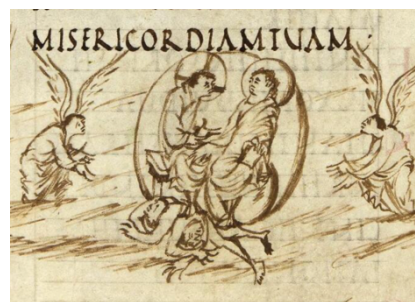 MISERICORDIAMTUAM·